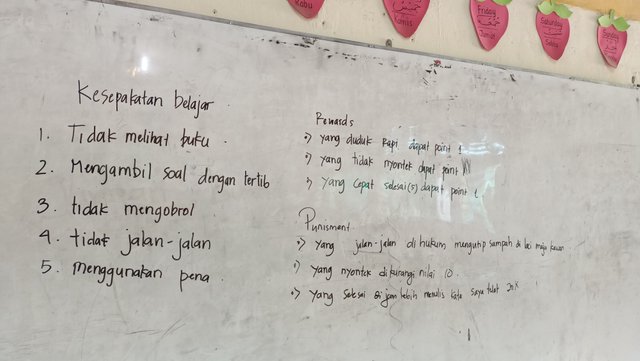 Rabu
Kamis
Friday
Jumat
Saturday
Sabtu
Sunday
Kesepakatan belajar
1. Tidak melihat buku
2. Mengambil soal dengan tertib
3. tidak mengobrol
4. tidak jalan-jalan
5. menggunakan pena
Rewards
yang duduk Rapi dapat point 1
yang tidak nyontek dapat point
Yang Cepat selesai (5) dapat point 1
Punisment
yang jalan-jalan di hukum mengutip sampah di laci meja kawan
yang nyontek di kurangi nilai 10.
yang selesai di jam lebih menulis kata saya telat